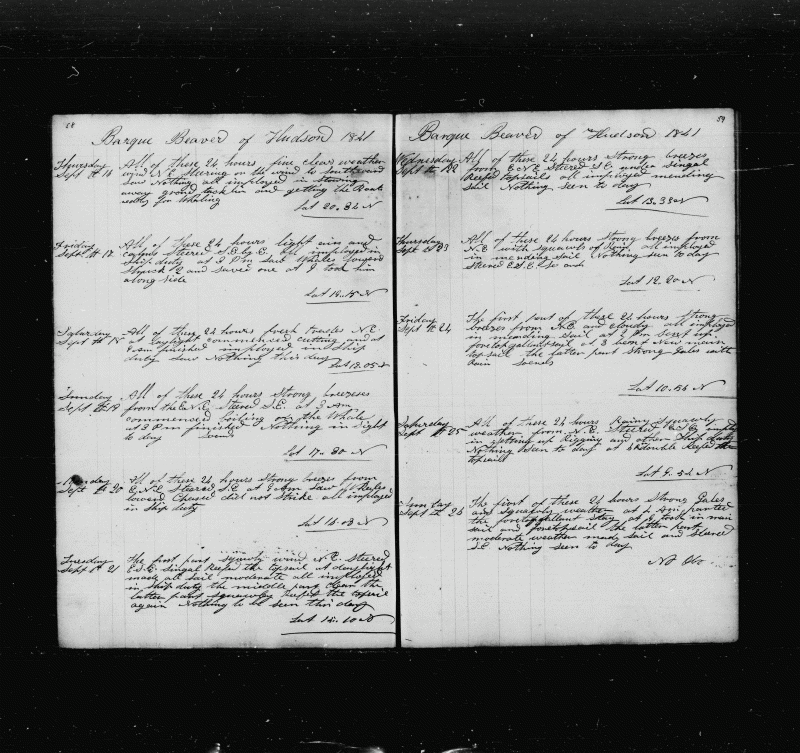 58
Barque Beaver of Hudson 1841
Thursday All of these 24 hours fine clear weather
Sept th 16 wind N.E. Steering on the wind to Southward
Saw Nothing all imployed in stowing
away ground tackline and getting the Boats
ready for Whaling
Lat 20.34 N
Friday All of these 24 hours light airs and
Sept th 17 calms Steered S.E. by E. all imployed in
Ship duty at 3 Pm Saw Whales lowerd
Struck 2 and saved one at 9 took him
along side
Lat 18.15 N
Saturday All of these 24 hours fresh breezes N.E.
Sept th 18 at daylight commenced cutting and at
9 am finished imployed in Ship
duty Saw Nothing this day
Lat 18.05 N
Sunday All of these 24 hours Strong breezes
Sept th 19 from the E.N.E. Steered S.E. at 3 Am
commenced boiling on the Whale
at 3 Pm finished Nothing in Sight
to day
Lat 17.30 N
Monday All of these 24 hours Strong breezes from
Sept th 20 E.N.E. Steered S.E. at 9 Am Saw
lowerd Chased did not Strike all imployed
in Ship duty
Lat 16.03 N
Tuesday The first part Squawly wind N.E. Steered
Sept th 21 E.S.E. Singal Reefed the topsail at daylight
made all sail moderate all imployed
in Ship duty the middle part clear the
latter part Squawley Reeft the topsail
again Nothing to be seen this day
Lat 14.10 N
59
Barque Beaver of Hudson 1841
Wednesday All of these 24 hours Strong breezes
Sept th 22 from E.N.E. Steered S.E. under Singal
Reefed topsails all imployed mending
Sail Nothing seen to day
Lat 13.38 N
Thursday All of these 24 hours Strong breezes from
Sept rd 23 N.E. with squawls of Rain all imployed
in mending sail Nothing seen to day
Steered E.S.E.
Lat 12.20 N
Friday The first part of these 24 hours strong
Sept th 24 breezes from N.E. and cloudy all imployed
in mending sail at 2 Pm sent up
foretopgallantsail at 3 bent New main
topsail the latter part Strong Gales with
Rain
Lat 10.54 N
Saturday All of these 24 hours Rainy squawly
Sept th 25 weather from N.E. Steered imployed
in setting up Rigging and other Ship duty
Nothing seen to day at Reefed the
topsail
Lat 9.34 N
Sunday The first of these 24 hours Strong Gales
Sept th 26 and Squawly weather at 4 Am parted
the foretopgallant stay at 9 took in main
sail and foretopsail the latter part
moderate weather made sail and Steered
S.E. Nothing seen to day
No Obs